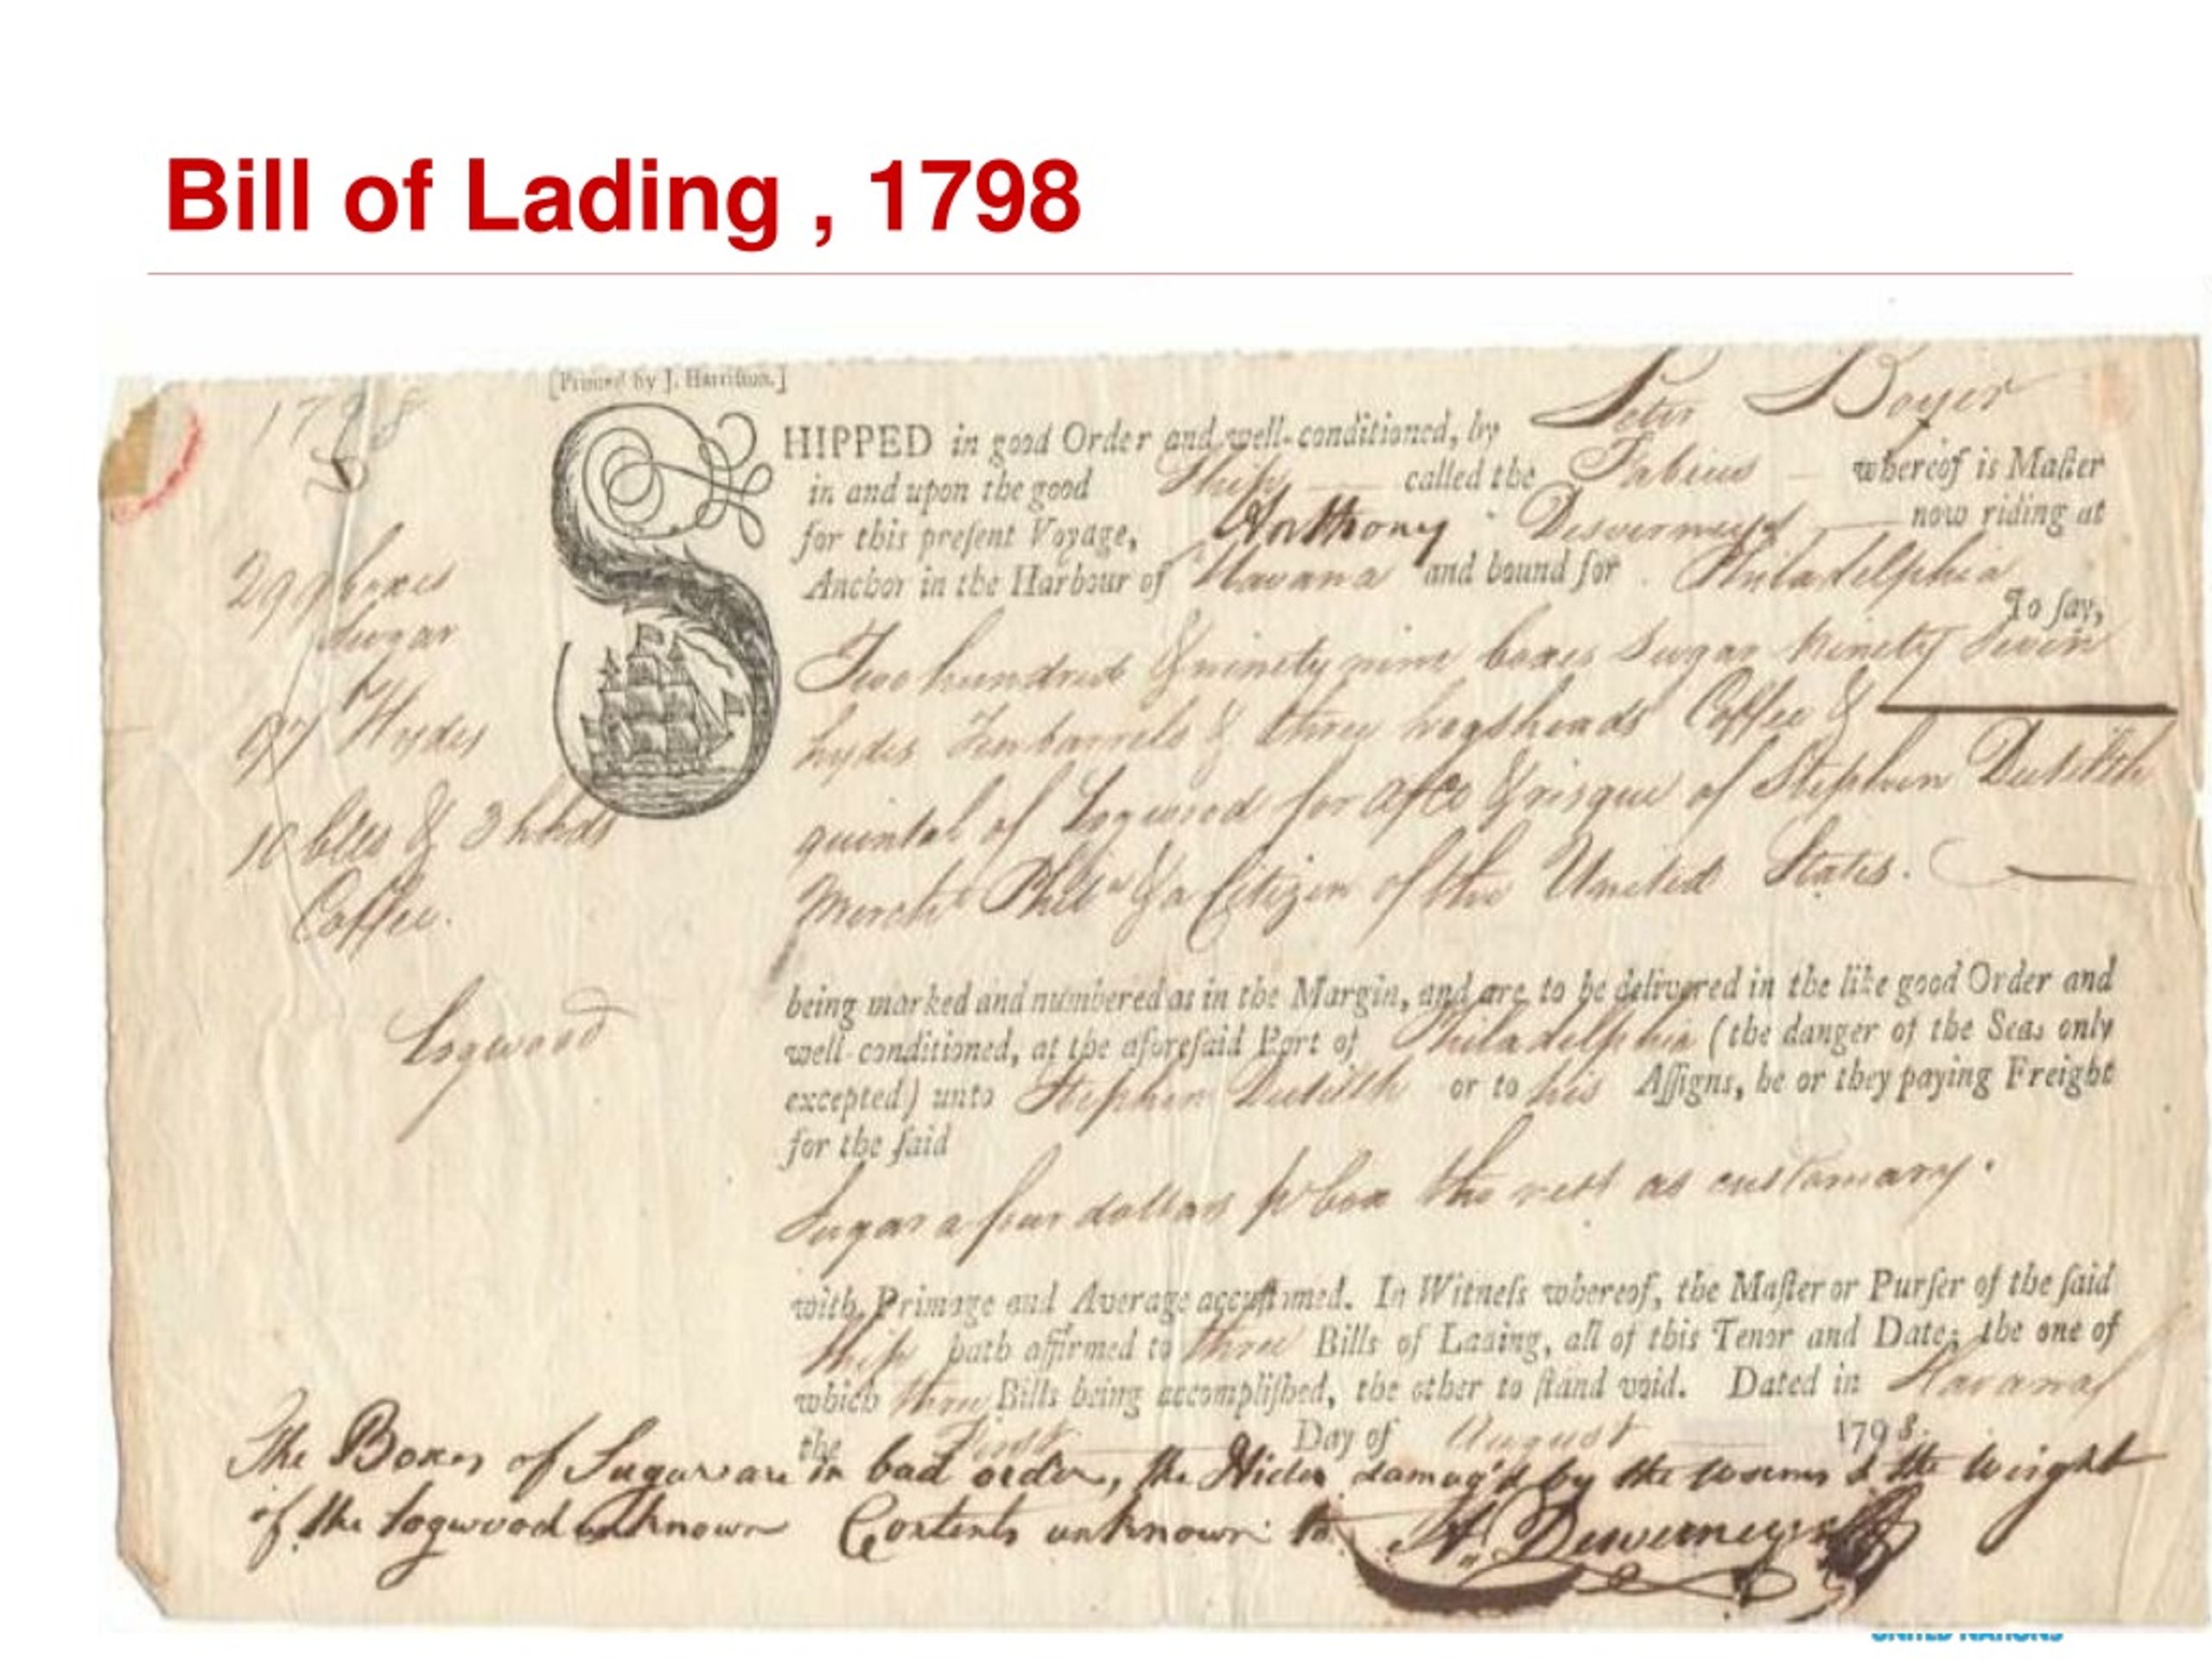 Bill of Lading , 1798
[Printed by J. Harriſon.]
1798
Peter Boyer
SHIPPED in good Order and well-conditioned, by
in and upon the good Ship called the Fabius whereof is Maſter
for this preſent Voyage, Anthony now riding at
Anchor in the Harbour of Havana and bound for Philadelphia
To ſay,
299 boxes
Sugar
97 Hydes
10 blls & 3 hhds
Coffee.
Logwood
Two hundred & ninety nine boxes Sugar Ninety Seven
hydes Ten barrels & three hogsheads Coffee &
quintal of Logwood for a/cc & risque of Stephen Dutilth
Mercht Phila & a Citizen of the United States.
being marked and numbered as in the Margin, and are to be delivered in the like good Order and
well-conditioned, at the aforeſaid Port of Philadelphia (the danger of the Seas only
excepted) unto Stephen Dutilth or to his Aſſigns, he or they paying Freight
for the ſaid
Sugar a four dollars p box the rest as customary.
with Primage and Average accuſtomed. In Witneſs whereof, the Maſter or Purſer of the ſaid
Ship hath affirmed to three Bills of Lading, all of this Tenor and Date; the one of
which three Bills being accompliſhed, the other to ſtand void. Dated in Havana
the First Day of August 1798.
The Boxes of Sugar are in bad order, the Hides damag'd by the worms & the weight
of the Logwood unknown Contents unknown to
UNITED NATIONS